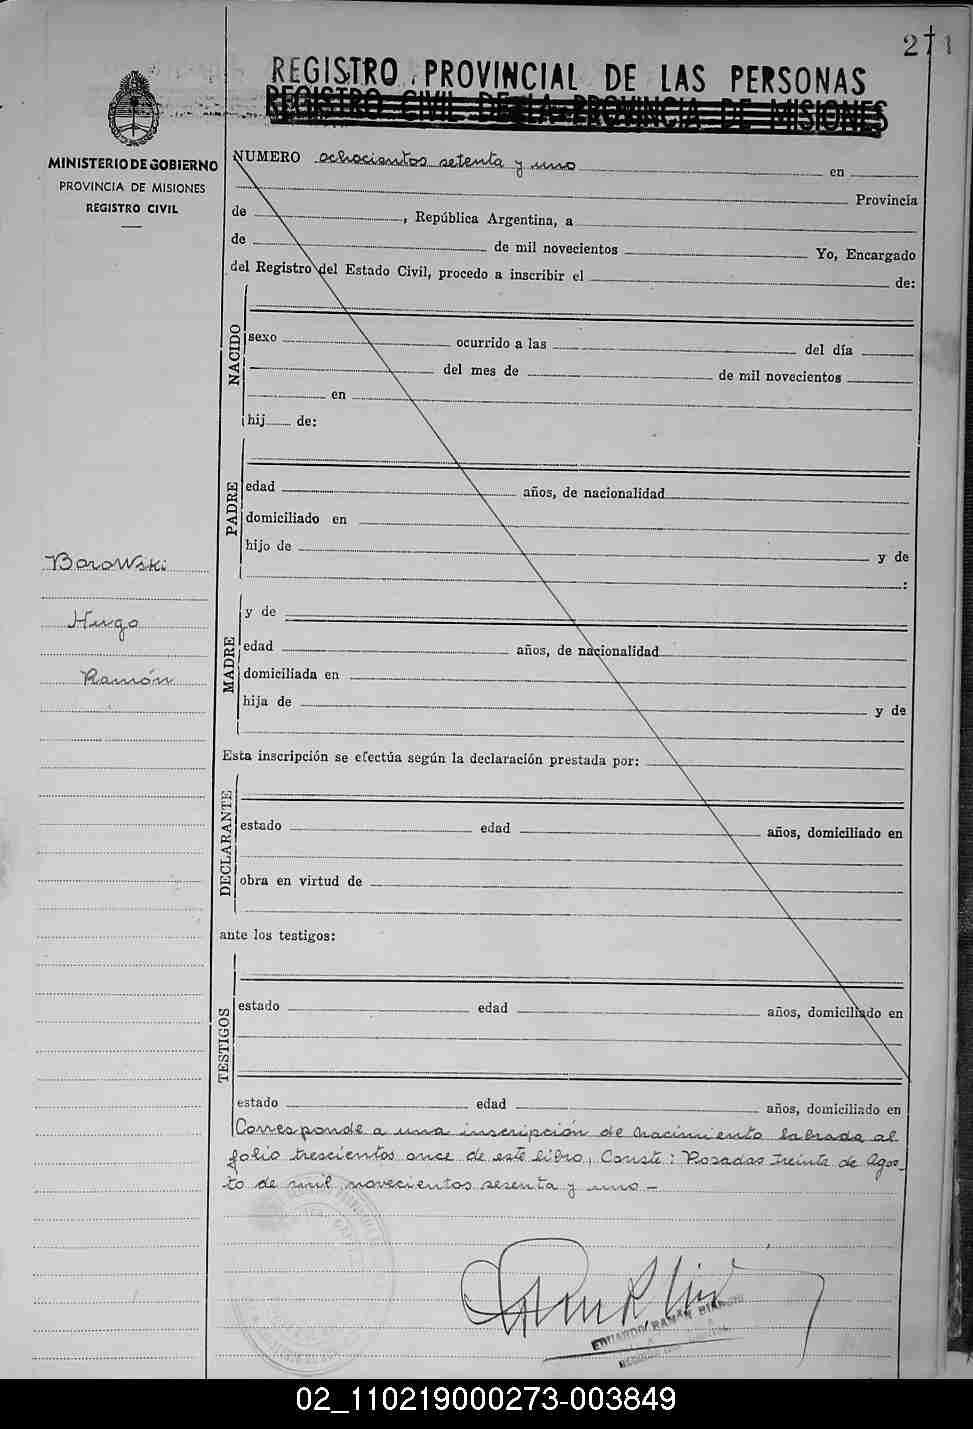 271
REGISTRO PROVINCIAL DE LAS PERSONAS
REGISTRO CIVIL DE LA PROVINCIA DE MISIONES
MINISTERIO DE GOBIERNO
PROVINCIA DE MISIONES
REGISTRO CIVIL
NUMERO ochocientos setenta y uno en
Provincia
de , República Argentina, a
de de mil novecientos Yo, Encargado
del Registro del Estado Civil, procedo a inscribir el de:
NACIDO
sexo ocurrido a las del día
del mes de de mil novecientos
en
hij de:
PADRE
edad años, de nacionalidad
domiciliado en
hijo de y de
:
Borowski
Hugo
Ramón
MADRE
y de
edad años, de nacionalidad
domiciliada en
hija de y de
Esta inscripción se efectúa según la declaración prestada por:
DECLARANTE
estado edad años, domiciliado en
obra en virtud de
ante los testigos:
TESTIGOS
estado edad años, domiciliado en
estado edad años, domiciliado en
Corresponde a una inscripción de nacimiento labrada al
folio trescientos once de este libro, Conste: Posadas treinta de Agos-
to de mil novecientos sesenta y uno -
EDUARDO RAMÓN BIANCHI
02_110219000273-003849